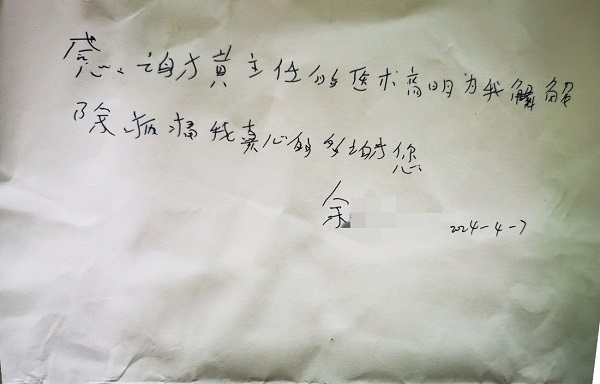 感谢黄主任的医术高明为我解
除病痛我真心的多谢您
余
2024-4-7